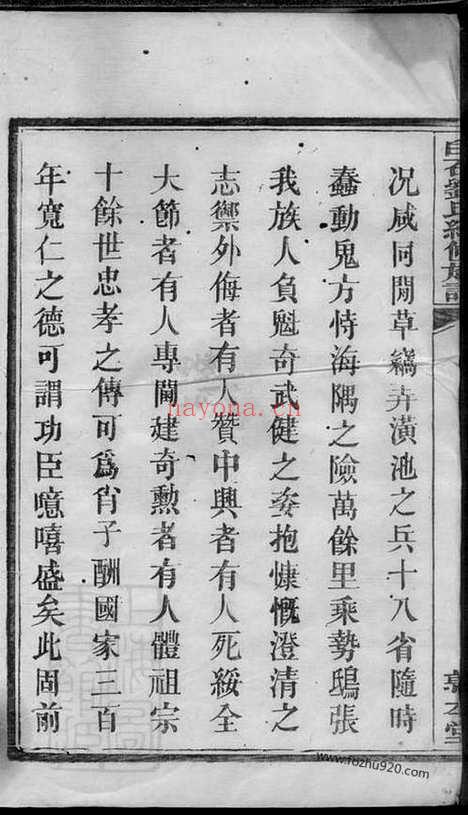 况咸同閒草竊弄潢池之兵十八省隨時
蠢動鬼方恃海隅之險萬餘里乘勢鴟張
我族人負魁奇武健之姿抱慷慨澄清之
志禦外侮者有人贊中興者有人死綏全
大節者有人專閫建奇勳者有人體祖宗
十餘世忠孝之傳可爲肖子酬國家三百
年寬仁之德可謂功臣噫嘻盛矣此固前
nayona.cn
www.fozhu920.com